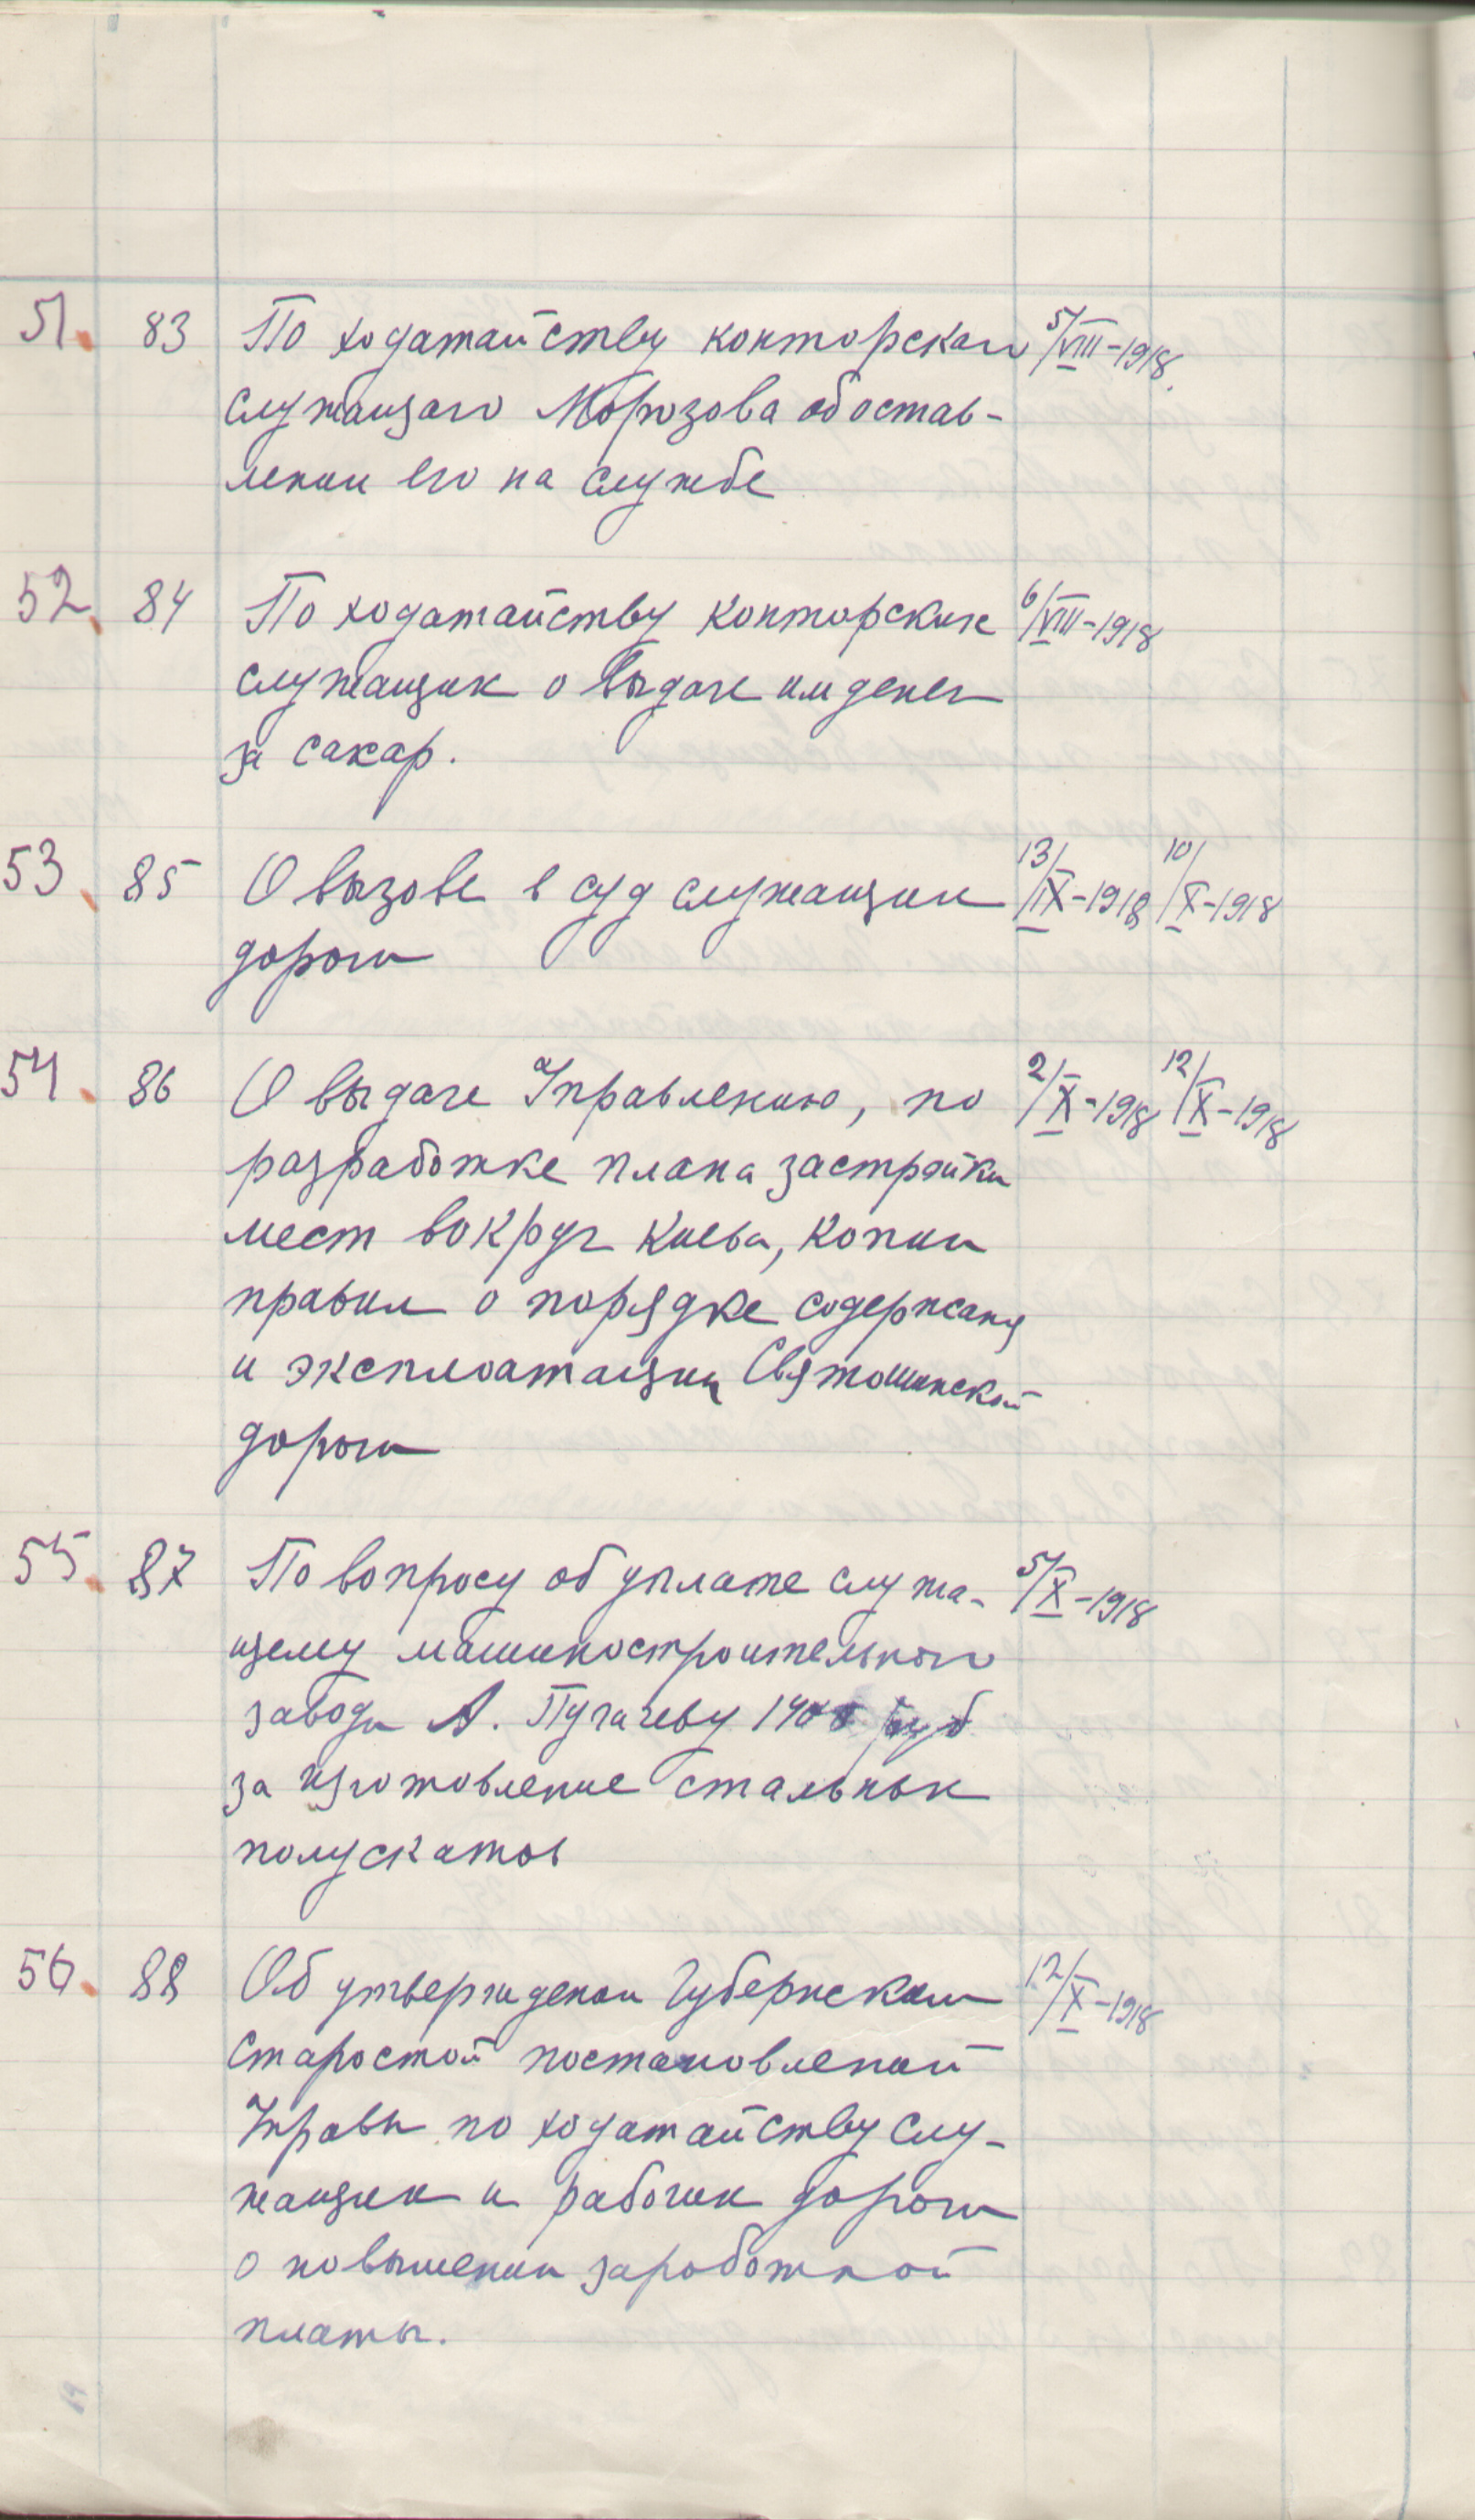 51. 83 По ходатайству конторскаго 5/VIII-1918.
служащаго Морозова об остав-
лении его на службе
52. 84 По ходатайству конторских 6/VIII-1918
служащих о выдаче им денег
за сахар.
53. 85 О вызове в суд служащих 13/IX-1918 10/X-1918
дороги
54. 86 О выдаче Управлению, по 2/X-1918 12/X-1918
разработке плана застройки
мест вокруг Киева, копии
правил о порядке содержания
и эксплоатации Святошинской
дороги
55. 87 По вопросу об уплате служа- 5/X-1918
щему машиностроительного
завода А. Пугачеву руб
за изготовление стальных
полускатов
56. 88 Об утверждении Губернским 12/X-1918
старостой постановлений
Управы по ходатайству слу-
жащих и рабочих дороги
о повышении заработной
платы.